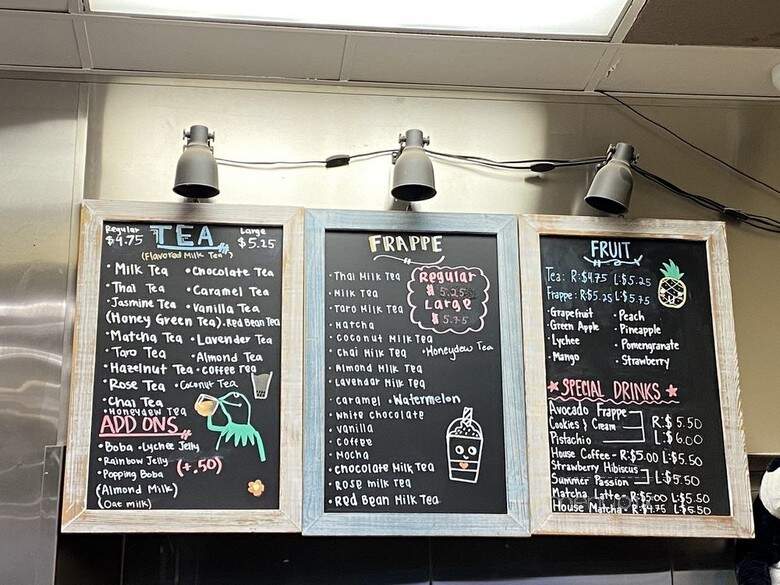 Regular TEA Large
$4.75 $5.25
(Flavored Milk Tea)
• Milk Tea • Chocolate Tea
• Thai Tea • Caramel Tea
• Jasmine Tea • Vanilla Tea
(Honey Green Tea) • Red Bean Tea
• Matcha Tea • Lavender Tea
• Taro Tea • Almond Tea
• Hazelnut Tea • Coffee Tea
• Rose Tea • Coconut Tea
• Chai Tea
• Honeydew Tea
ADD ONS
• Boba • Lychee Jelly
• Rainbow Jelly (+.50)
• Popping Boba
(Almond Milk)
(Oat milk)
FRAPPE
• Thai Milk Tea
• Milk Tea
• Taro Milk Tea
• Matcha
• coconut Milk Tea
• Chai Milk Tea • Honeydew Tea
• Almond Milk Tea
• Lavendar Milk Tea
• caramel • Watermelon
• white chocolate
• vanilla
• coffee
• Mocha
• chocolate Milk Tea
• Rose milk Tea
• Red Bean Milk Tea
Regular
$5.25
Large
$5.75
FRUIT
Tea: R:$4.75 L:$5.25
Frappe: R:$5.25 L:$5.75
• Grapefruit • Peach
• Green Apple • Pineapple
• Lychee • Pomengranate
• Mango • Strawberry
SPECIAL DRINKS
Avocado Frappe
Cookies & Cream R:$5.50
Pistachio L:$6.00
House Coffee - R:$5.00 L:$5.50
Strawberry Hibiscus
Summer Passion L:$5.50
Matcha Latte - R:$5.00 L:$5.50
House Matcha - R:$4.75 L:$5.50